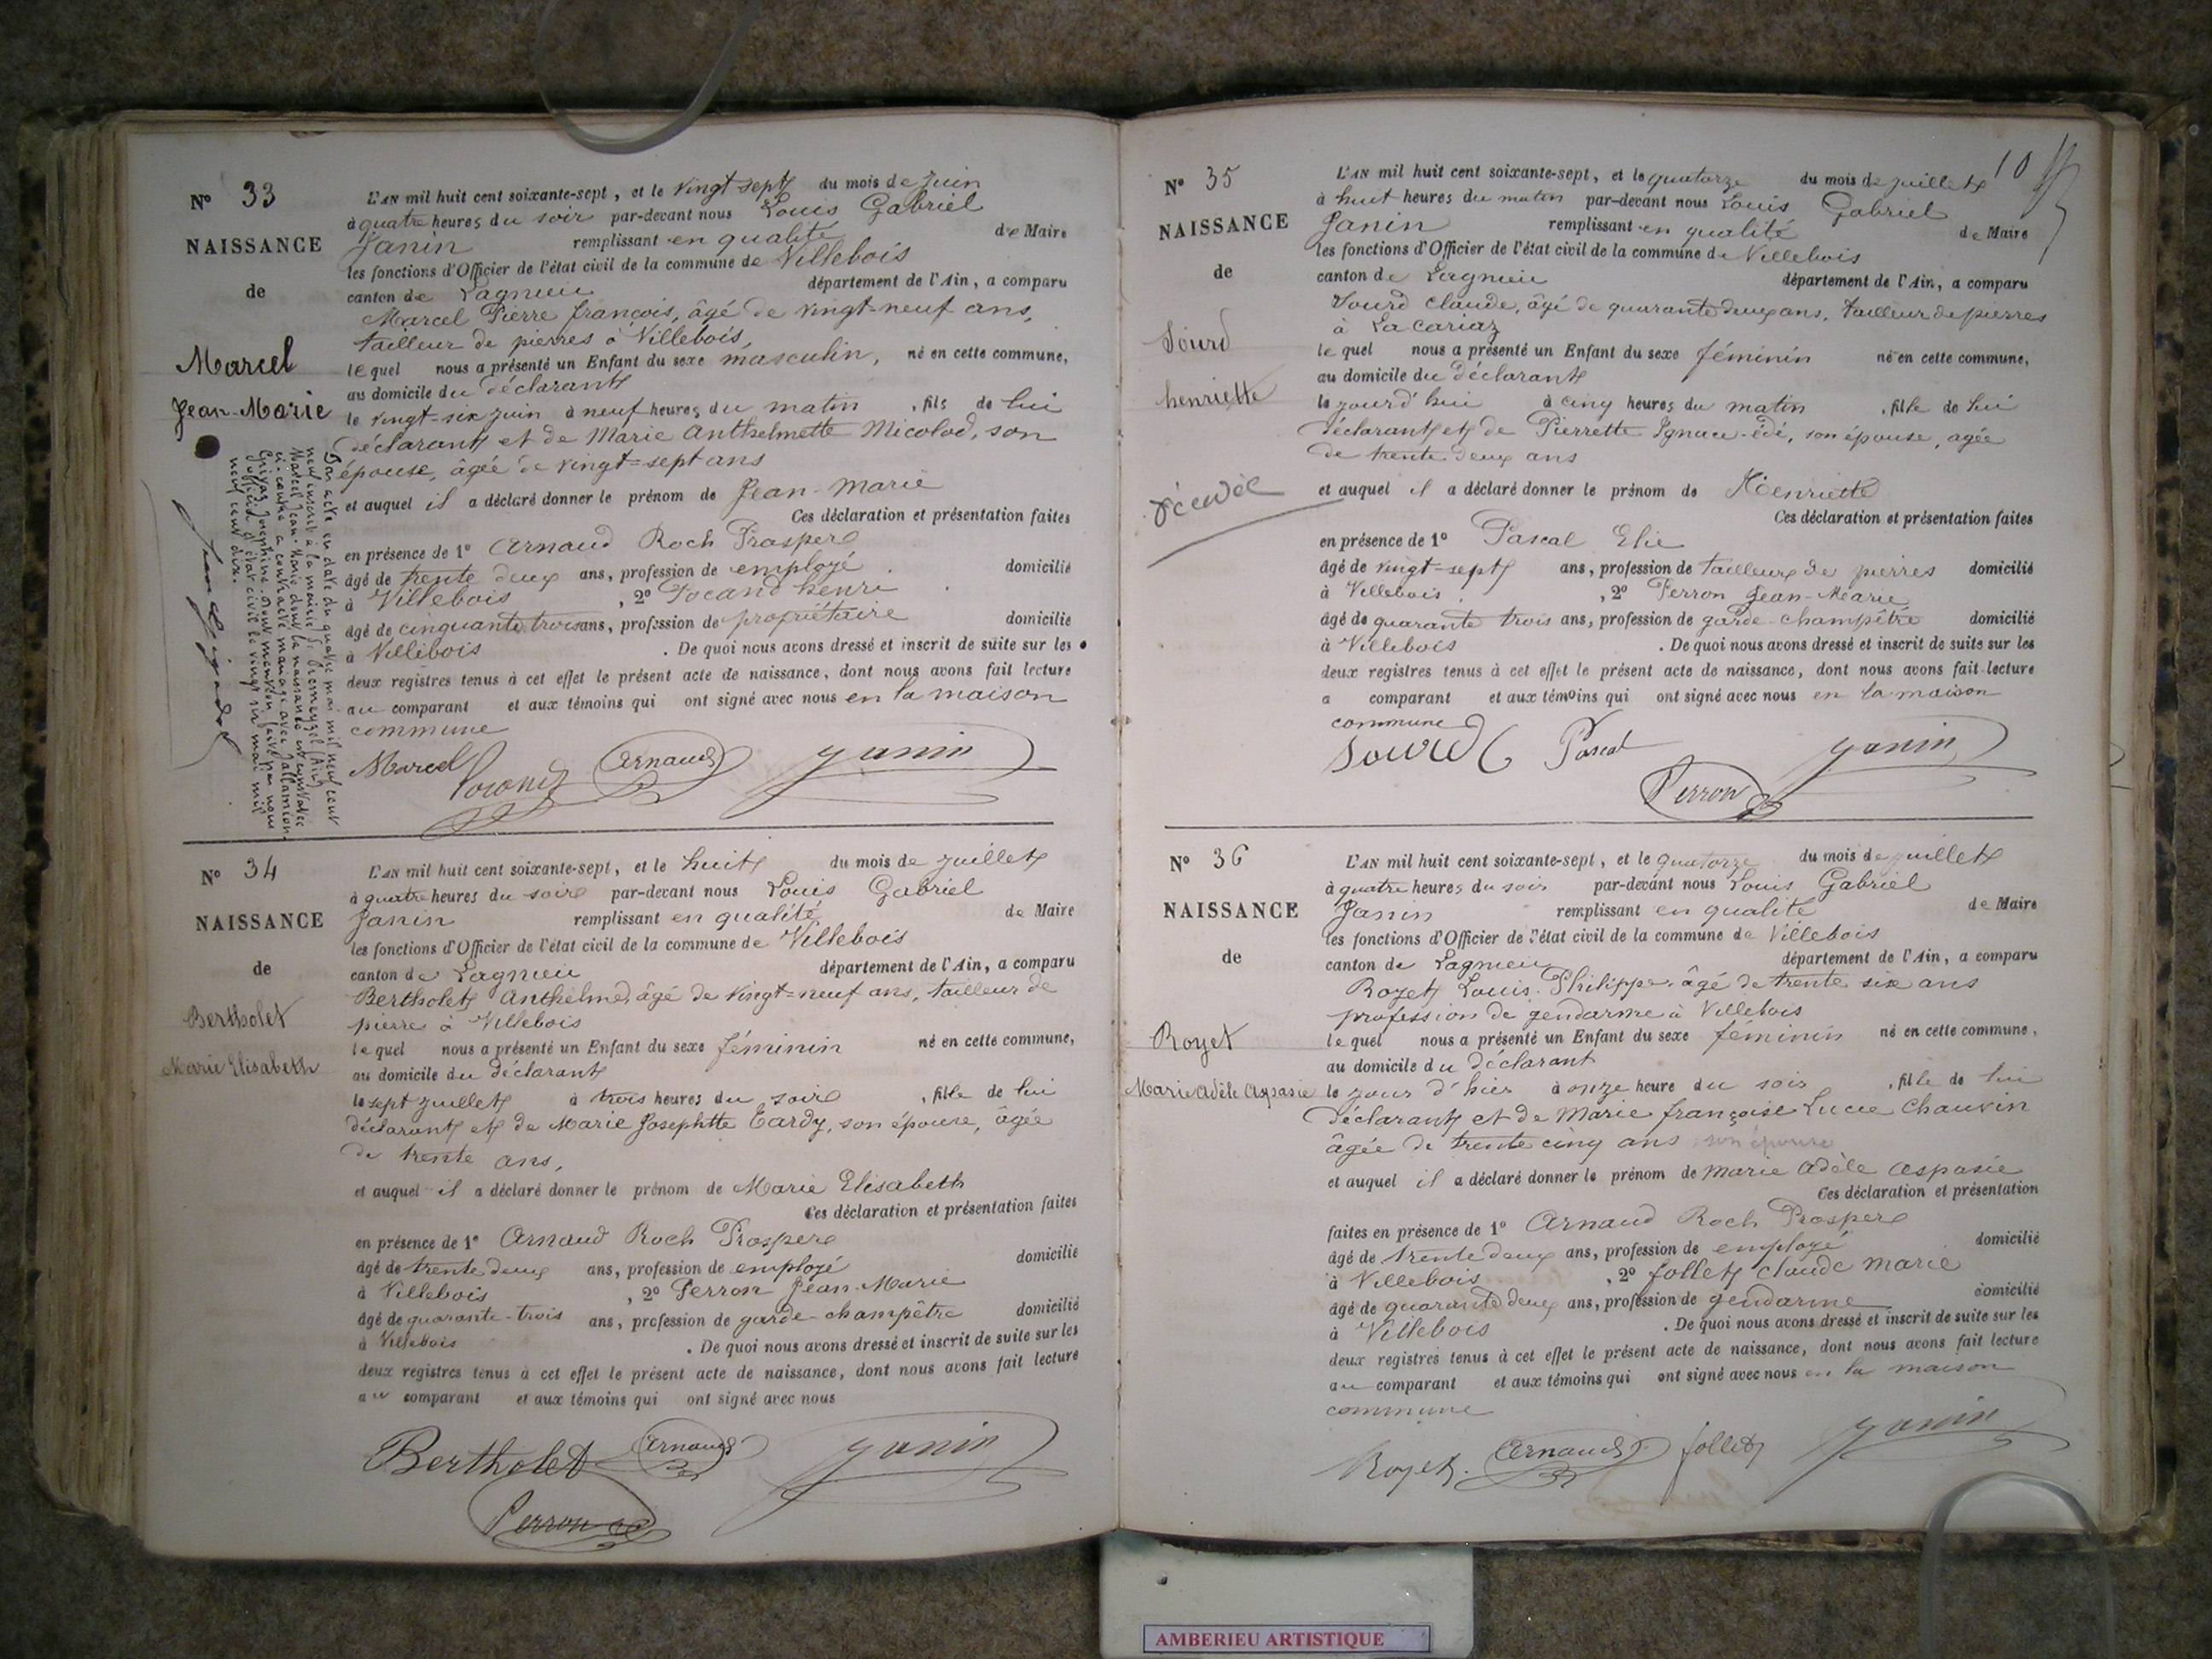 N° 33
NAISSANCE
de
Marcel
Jean-Marie
L'AN mil huit cent soixante-sept, et le vingt sept du mois de juin
à quatre heures du soir par-devant nous Louis Gabriel
Janin remplissant en qualité de Maire
les fonctions d'Officier de l'état civil de la commune de Villebois
canton de Lagnieu département de l'Ain, a comparu
Marcel Pierre françois, âgé de vingt-neuf ans,
tailleur de pierres à Villebois,
lequel nous a présenté un Enfant du sexe masculin, né en cette commune,
au domicile du déclarant
le vingt-six juin à neuf heures du matin, fils de lui
déclarant et de Marie Anthelmette Micolod, son
épouse, âgée de vingt-sept ans
et auquel il a déclaré donner le prénom de Jean-Marie
Ces déclaration et présentation faites
en présence de 1° Arnaud Roch Prosper
âgé de trente deux ans, profession de employé domicilié
à Villebois, 2° Pocand henri
âgé de cinquante trois ans, profession de propriétaire domicilié
à Villebois. De quoi nous avons dressé et inscrit de suite sur les
deux registres tenus à cet effet le présent acte de naissance, dont nous avons fait lecture
au comparant et aux témoins qui ont signé avec nous en la maison
commune
Marcel
Arnaud
Janin
Par acte en date du quatre mai mil neuf cent
neuf inscrit à la mairie de
Marcel Jean-Marie dont la naissance est constatée
ci-contre a contracté mariage avec
Joséphine. Dont mention faite par nous
officier d'état civil le vingt six mai mil
neuf cent dix.
N° 34
NAISSANCE
de
Bertholet
Marie Elisabeth
L'AN mil huit cent soixante-sept, et le huit du mois de juillet
à quatre heures du soir par-devant nous Louis Gabriel
Janin remplissant en qualité de Maire
les fonctions d'Officier de l'état civil de la commune de Villebois
canton de Lagnieu département de l'Ain, a comparu
Bertholet Anthelme, âgé de vingt-neuf ans, tailleur de
pierres à Villebois
lequel nous a présenté un Enfant du sexe féminin né en cette commune,
au domicile du déclarant
le sept juillet à trois heures du soir, fille de lui
déclarant et de Marie Josephtte Tardy, son épouse, âgée
de trente ans,
et auquel il a déclaré donner le prénom de Marie Elisabeth
Ces déclaration et présentation faites
en présence de 1° Arnaud Roch Prosper
âgé de trente deux ans, profession de employé domicilié
à Villebois, 2° Perron Jean-Marie
âgé de quarante-trois ans, profession de garde-champêtre domicilié
à Villebois. De quoi nous avons dressé et inscrit de suite sur les
deux registres tenus à cet effet le présent acte de naissance, dont nous avons fait lecture
au comparant et aux témoins qui ont signé avec nous
Bertholet Arnaud Janin
Perron
10
N° 35
NAISSANCE
de
Sourd
henriette
décédée
L'AN mil huit cent soixante-sept, et le quatorze du mois de juillet
à huit heures du matin par-devant nous Louis Gabriel
Janin remplissant en qualité de Maire
les fonctions d'Officier de l'état civil de la commune de Villebois
canton de Lagnieu département de l'Ain, a comparu
Sourd Claude, âgé de quarante deux ans, tailleur de pierres
à La Cariaz
lequel nous a présenté un Enfant du sexe féminin né en cette commune,
au domicile du déclarant
le jourd'hui à cinq heures du matin, fille de lui
déclarant et de Pierrette, son épouse, âgée
de trente deux ans
et auquel il a déclaré donner le prénom de Henriette
Ces déclaration et présentation faites
en présence de 1° Pascal Elie
âgé de vingt-sept ans, profession de tailleur de pierres domicilié
à Villebois, 2° Perron Jean-Marie
âgé de quarante trois ans, profession de garde-champêtre domicilié
à Villebois. De quoi nous avons dressé et inscrit de suite sur les
deux registres tenus à cet effet le présent acte de naissance, dont nous avons fait lecture
a comparant et aux témoins qui ont signé avec nous en la maison
commune
Sourd Pascal Janin
Perron
N° 36
NAISSANCE
de
Royet
Marie Adèle Aspasie
L'AN mil huit cent soixante-sept, et le quatorze du mois de juillet
à quatre heures du soir par-devant nous Louis Gabriel
Janin remplissant en qualité de Maire
les fonctions d'Officier de l'état civil de la commune de Villebois
canton de Lagnieu département de l'Ain, a comparu
Royet Louis Philippe, âgé de trente six ans
profession de gendarme à Villebois
lequel nous a présenté un Enfant du sexe féminin né en cette commune,
au domicile du déclarant
le jour d'hier à onze heure du soir, fille de lui
déclarant et de Marie françoise Lucie Chauvin
âgée de trente cinq ans son épouse
et auquel il a déclaré donner le prénom de Marie Adèle Aspasie
Ces déclaration et présentation
faites en présence de 1° Arnaud Roch Prosper
âgé de trente deux ans, profession de employé domicilié
à Villebois, 2° follet Claude Marie
âgé de quarante deux ans, profession de gendarme domicilié
à Villebois. De quoi nous avons dressé et inscrit de suite sur les
deux registres tenus à cet effet le présent acte de naissance, dont nous avons fait lecture
au comparant et aux témoins qui ont signé avec nous en la maison
commune
Royet. Arnaud follet Janin
AMBERIEU ARTISTIQUE